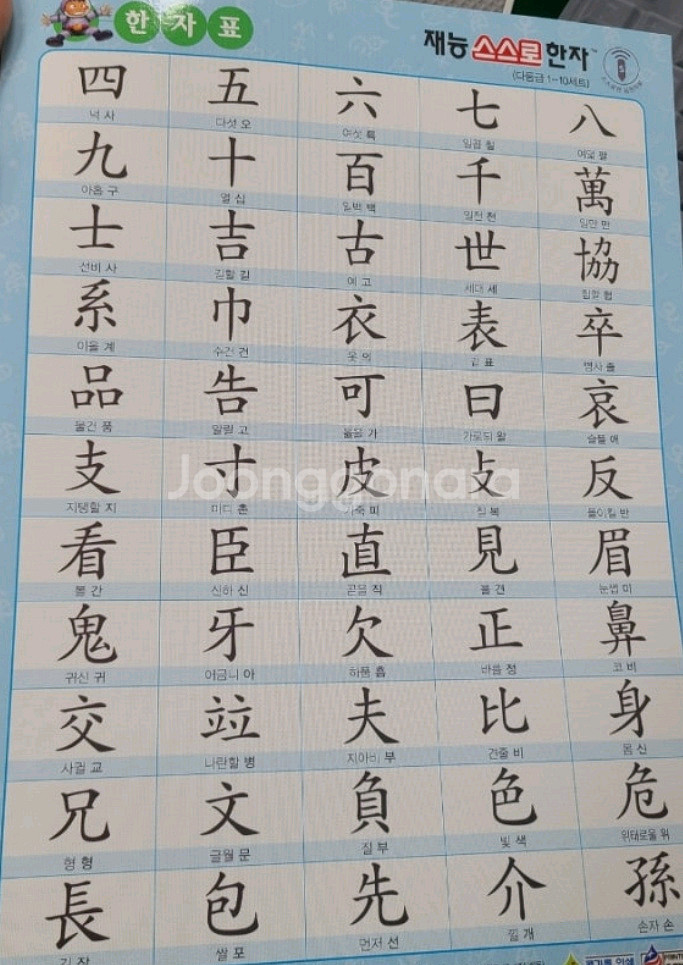 한자표
재능 스스로 한자™
(다등급 1~10세트)
四 五 六 七 八
넉 사 다섯 오 여섯 륙 일곱 칠 여덟 팔
九 十 百 千 萬
아홉 구 열 십 일백 백 일천 천 일만 만
士 吉 古 世 協
선비 사 길할 길 예 고 세대 세 협할 협
系 巾 衣 表 卒
이을 계 수건 건 옷 의 겉 표 병사 졸
品 告 可 曰 哀
물건 품 알릴 고 옳을 가 가로되 왈 슬플 애
支 寸 皮 攴 反
지탱할 지 마디 촌 가죽 피 칠 복 돌이킬 반
Joonggonara
看 臣 直 見 眉
볼 간 신하 신 곧을 직 볼 견 눈썹 미
鬼 牙 欠 正 鼻
귀신 귀 어금니 아 하품 흠 바를 정 코 비
交 竝 夫 比 身
사귈 교 나란할 병 지아비 부 견줄 비 몸 신
兄 文 負 色 危
형 형 글월 문 질 부 빛 색 위태로울 위
長 包 先 介 孫
긴 장 쌀 포 먼저 선 낄 개 손자 손
콩기름 인쇄